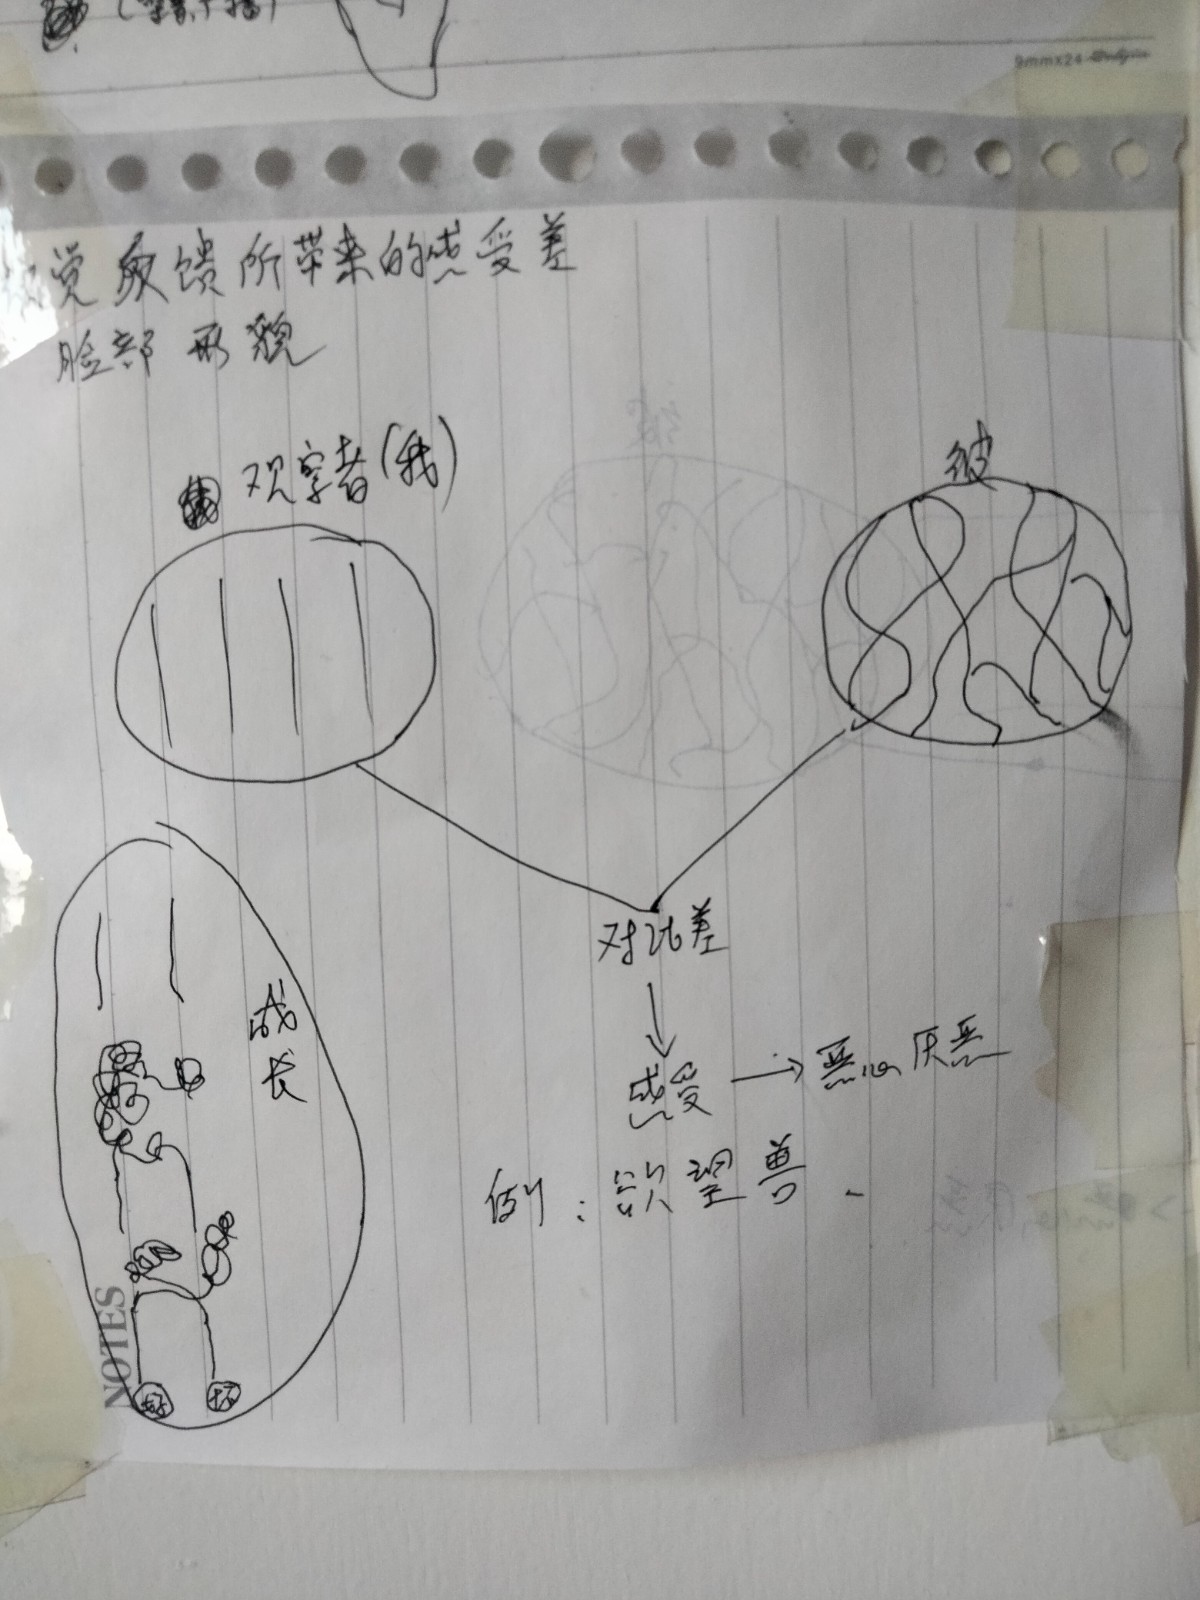 9mmx24
觉反馈所带来的感受差
脸部 形貌
观察者(我)
彼
对比差
成长
感受 → 恶心厌恶
例：欲望兽
NOTES
好 坏